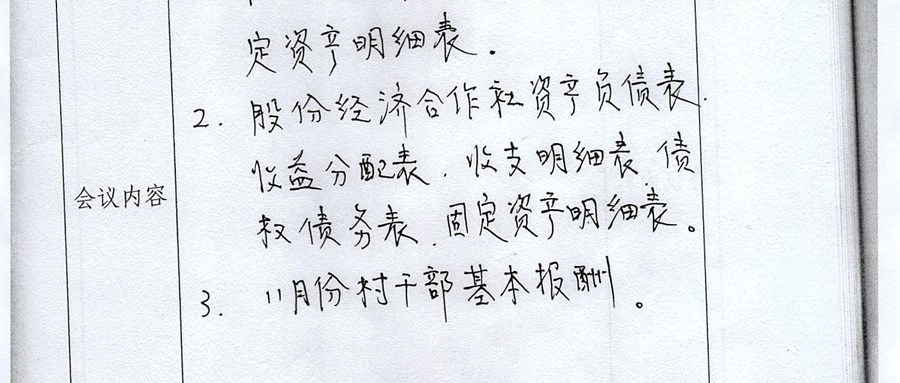 定资产明细表。
2. 股份经济合作社资产负债表.
收益分配表.收支明细表.债
会议内容
权债务表.固定资产明细表。
3. 11月份村干部基本报酬。